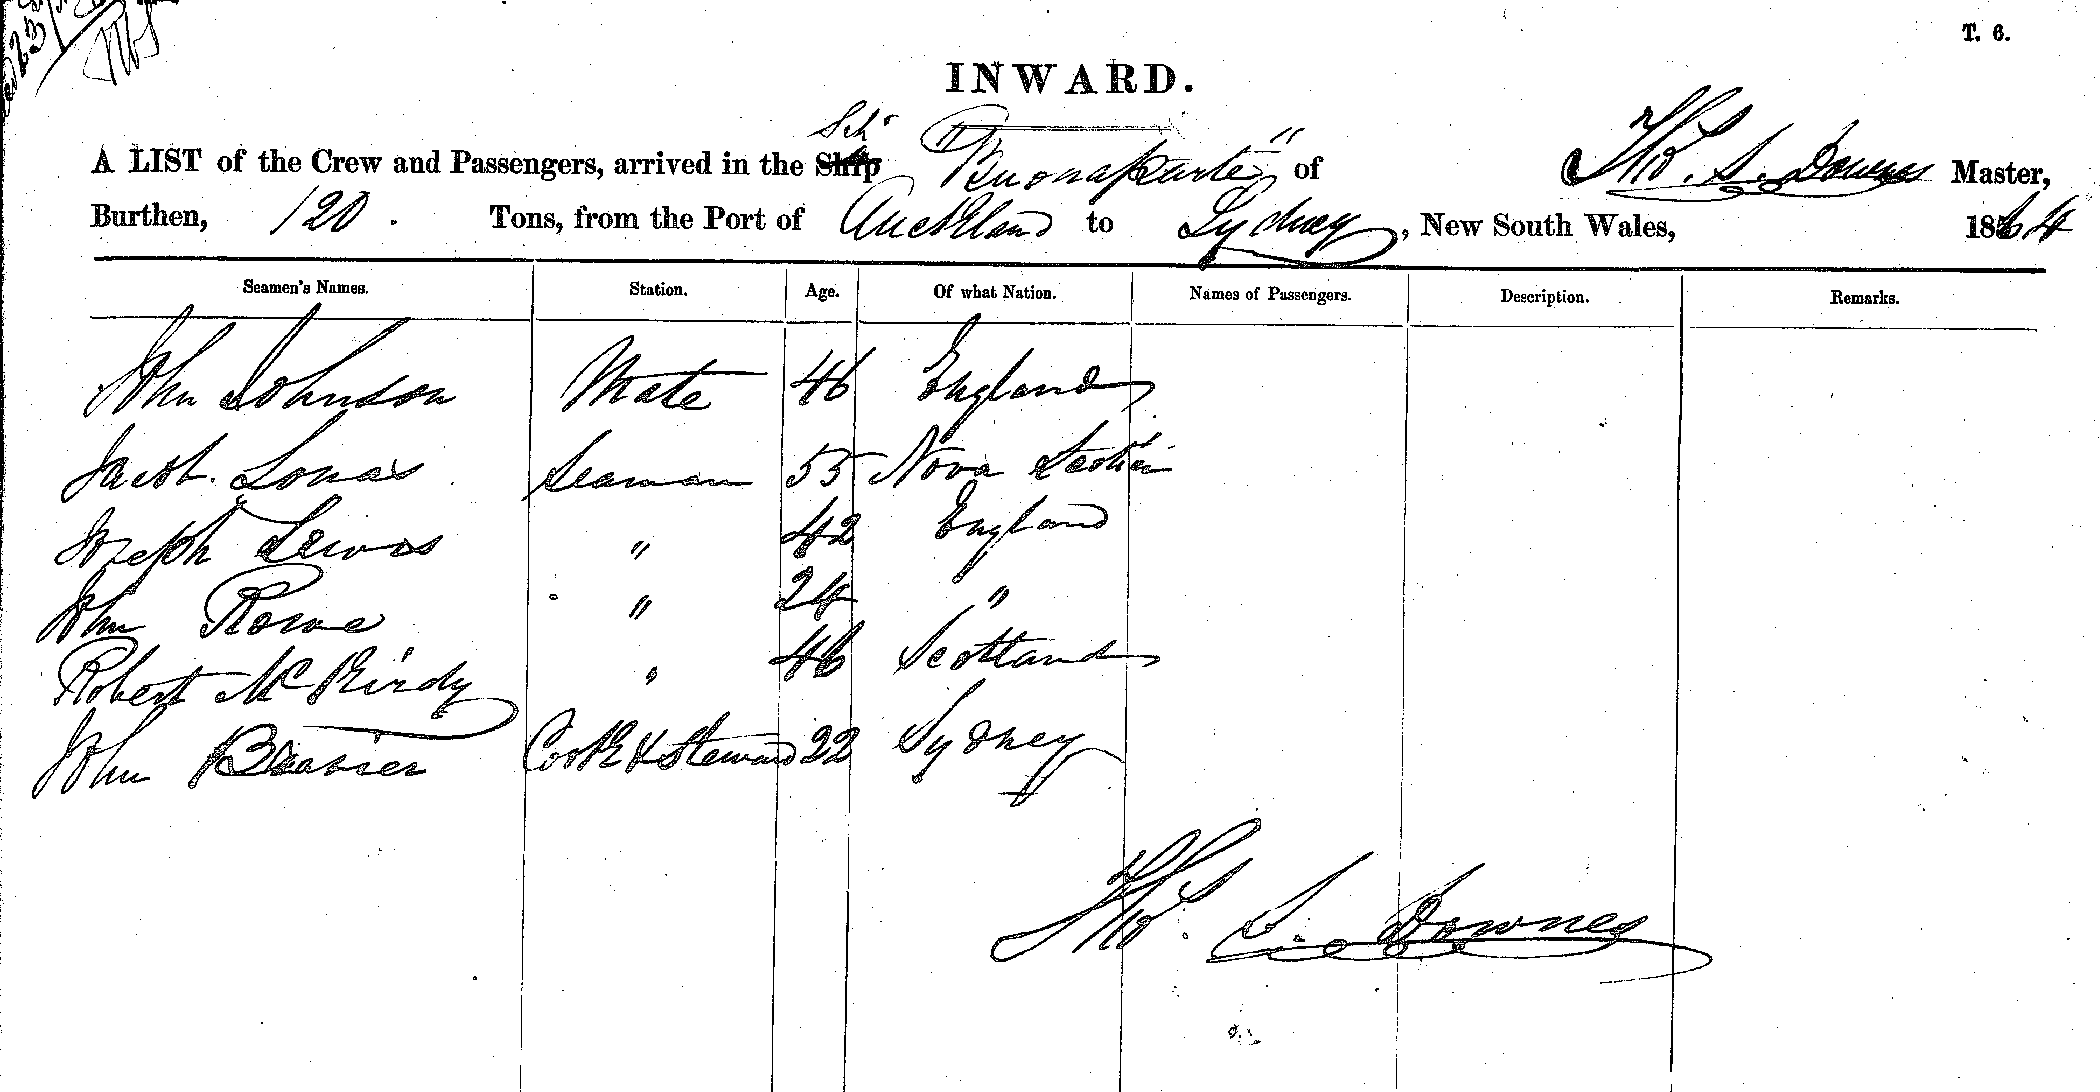 T. 6.
INWARD.
Schr
A LIST of the Crew and Passengers, arrived in the Ship "Buonaparte" of Thos. S. Downes Master,
Burthen, 120. Tons, from the Port of Auckland to Sydney, New South Wales, 1864
Seamen's Names. Station. Age. Of what Nation. Names of Passengers. Description. Remarks.
John Johnson Mate 46 England
Jacob Lonas Seaman 55 Nova Scotia
Joseph Lewis " 42 England
John Rowe " 24 "
Robert McKirdy " 46 Scotland
John Brasier Cook & Steward 22 Sydney
Thos. S. Downes